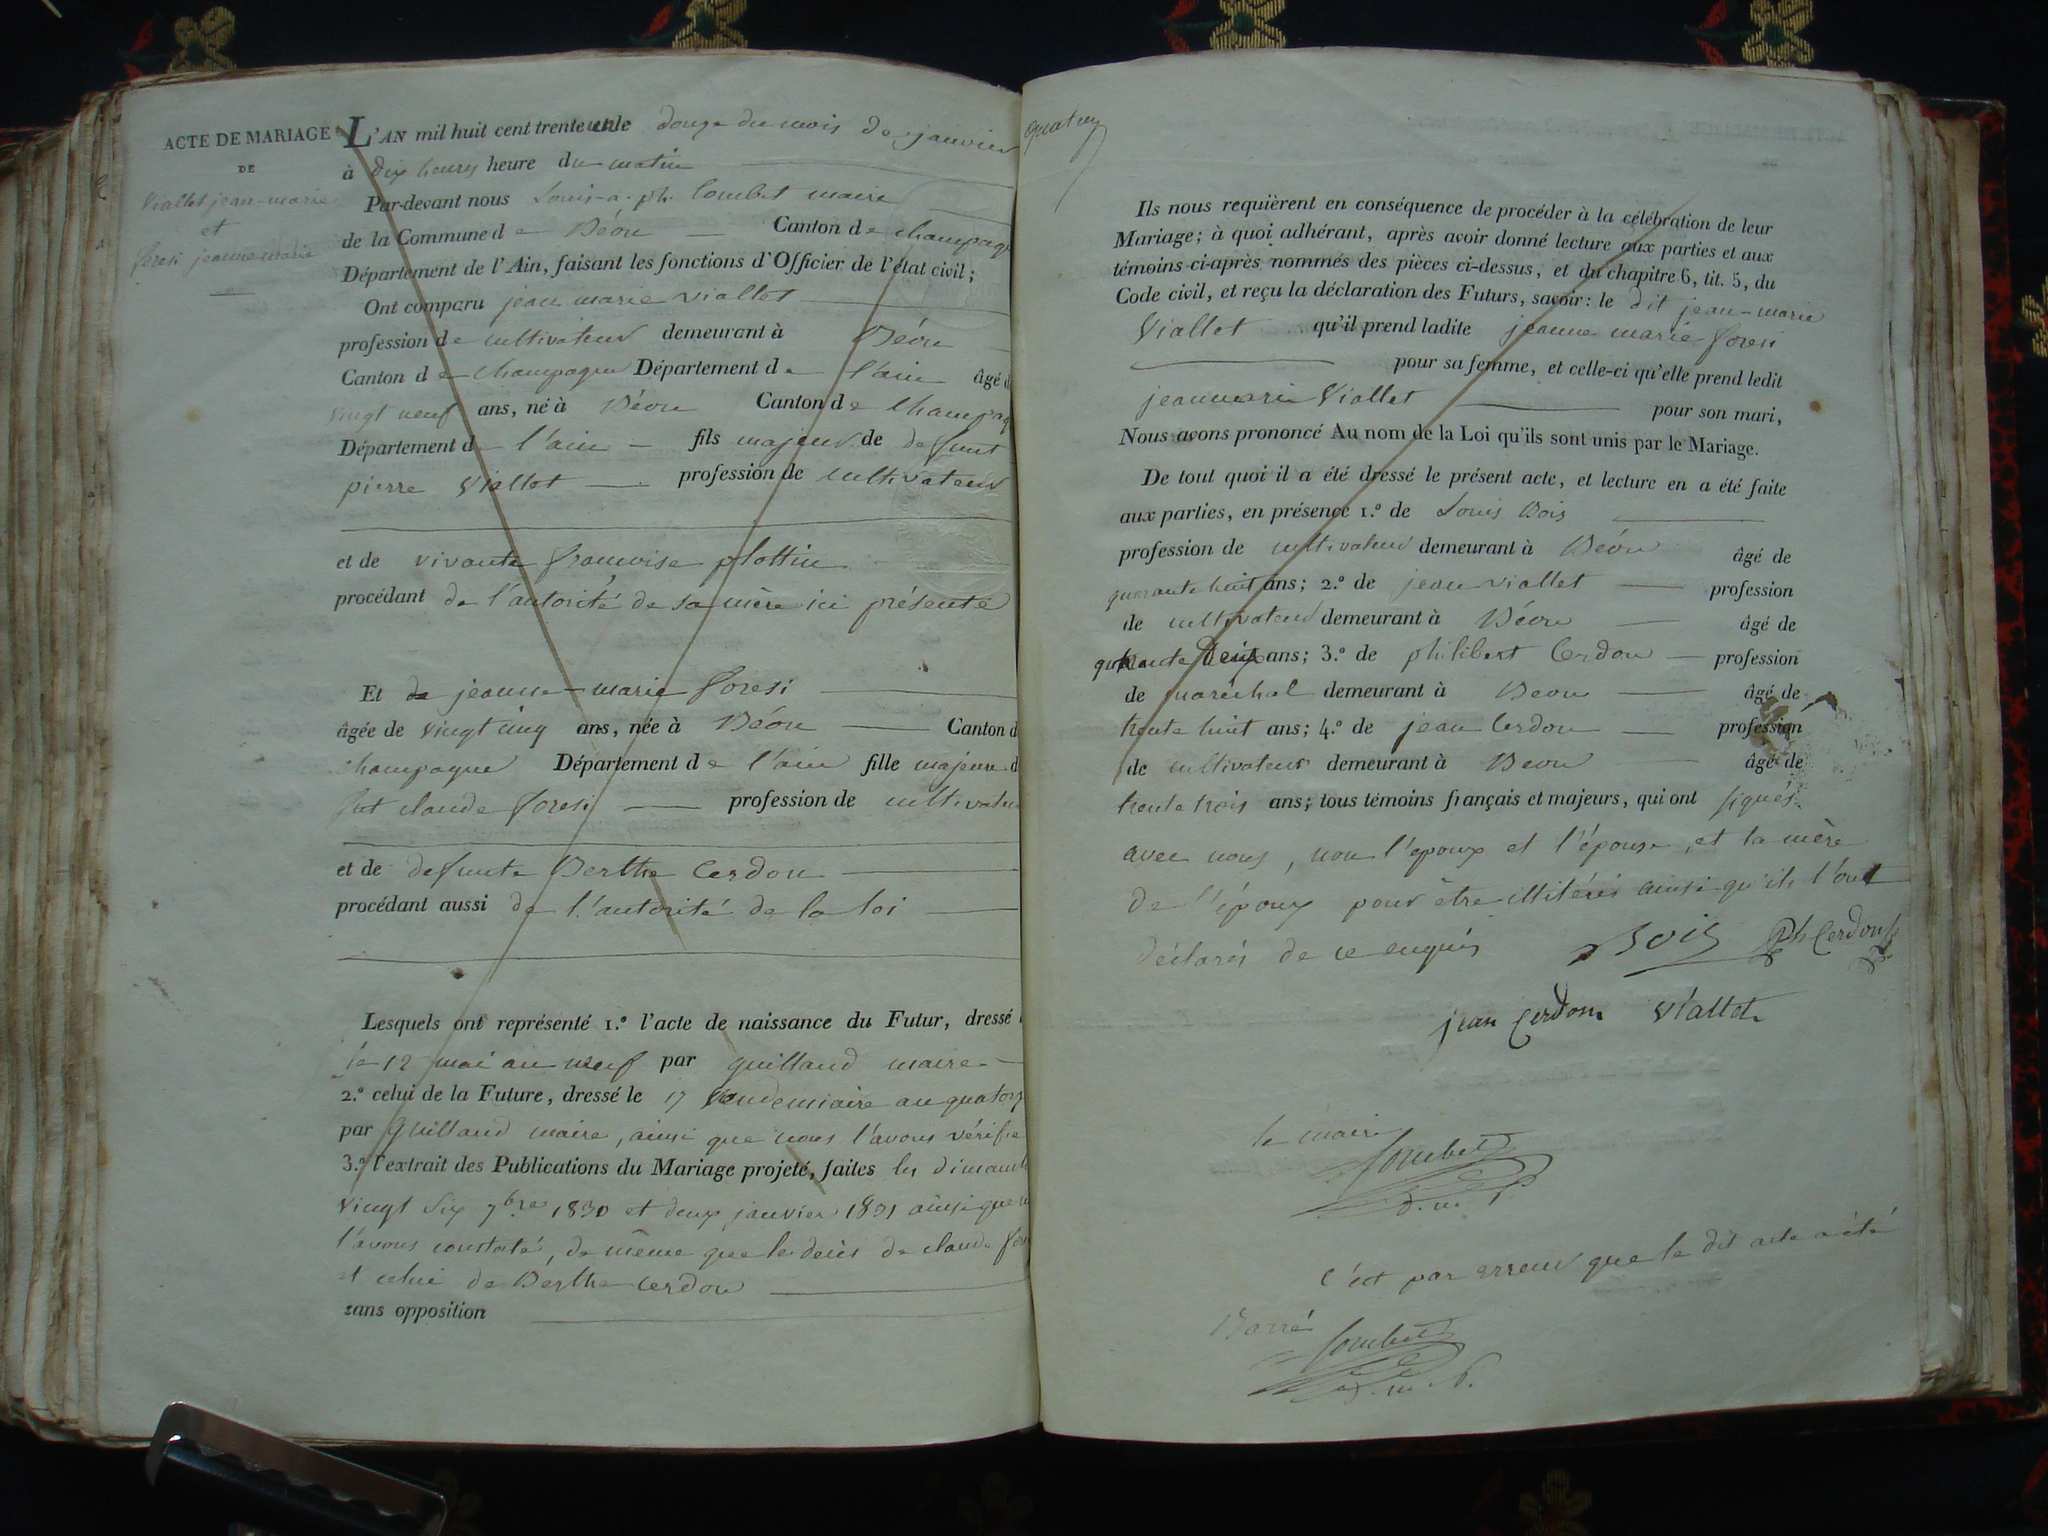 ACTE DE MARIAGE
DE
Viallet jean-marie
et
foresi jeanne marie
L'AN mil huit cent trente un le douze du mois de janvier
à dix heures heure du matin
Par-devant nous Louis-a-ph. Combet maire
de la Commune de Béon Canton de champagn
Département de l'Ain, faisant les fonctions d'Officier de l'état civil;
Ont comparu jean marie viallet
profession de cultivateur demeurant à Béon
Canton de Champagne Département de l'ain âgé d
vingt neuf ans, né à Béon Canton de Champag
Département de l'ain fils majeur de defunt
pierre Viallet profession de cultivateur
et de vivante francoise plottin
procédant de l'autorité de sa mère ici présente
Et de jeanne-marie foresi
âgée de vingt cinq ans, née à Béon Canton d
champagne Département de l'ain fille majeure d
fut claude foresi profession de cultivateu
et de defunte Berthe Cerdon
procédant aussi de l'autorité de la loi
Lesquels ont représenté 1.º l'acte de naissance du Futur, dressé
le 12 mai an neuf par guilland maire
2.º celui de la Future, dressé le 17 Vendemiaire an quatorz
par guilland maire, ainsi que nous l'avons vérifié
3.º l'extrait des Publications du Mariage projeté, faites les dimanch
vingt six 7bre 1830 et deux janvier 1831 ainsi que
l'avons constaté, de même que le decès de claude for
et celui de Berthe cerdon
sans opposition
quatre
Ils nous requièrent en conséquence de procéder à la célébration de leur
Mariage; à quoi adhérant, après avoir donné lecture aux parties et aux
témoins ci-après nommés des pièces ci-dessus, et du chapitre 6, tit. 5, du
Code civil, et reçu la déclaration des Futurs, savoir: le dit jean-marie
Viallet qu'il prend ladite jeanne marie foresi
pour sa femme, et celle-ci qu'elle prend ledit
jeanmarie Viallet pour son mari,
Nous avons prononcé Au nom de la Loi qu'ils sont unis par le Mariage.
De tout quoi il a été dressé le présent acte, et lecture en a été faite
aux parties, en présence 1.º de Louis Bois
profession de cultivateur demeurant à Béon âgé de
quarante huit ans; 2.º de jean viallet profession
de cultivateur demeurant à Béon âgé de
deux ans; 3.º de philibert Cerdon profession
de maréchal demeurant à Beon âgé de
trente huit ans; 4.º de jean Cerdon profession
de cultivateur demeurant à Beon âgé de
trente trois ans; tous témoins français et majeurs, qui ont signés
avec nous, non l'epoux et l'épouse, et la mère
de l'époux pour être illitérés ainsi qu'ils l'ont
déclarés de ce enquis
Bois Ph Cerdon
jean Cerdon Viallet
le maire
Combet
d. m. p.
C'est par erreur que le dit acte a été
Barré
Combet
d. m. p.